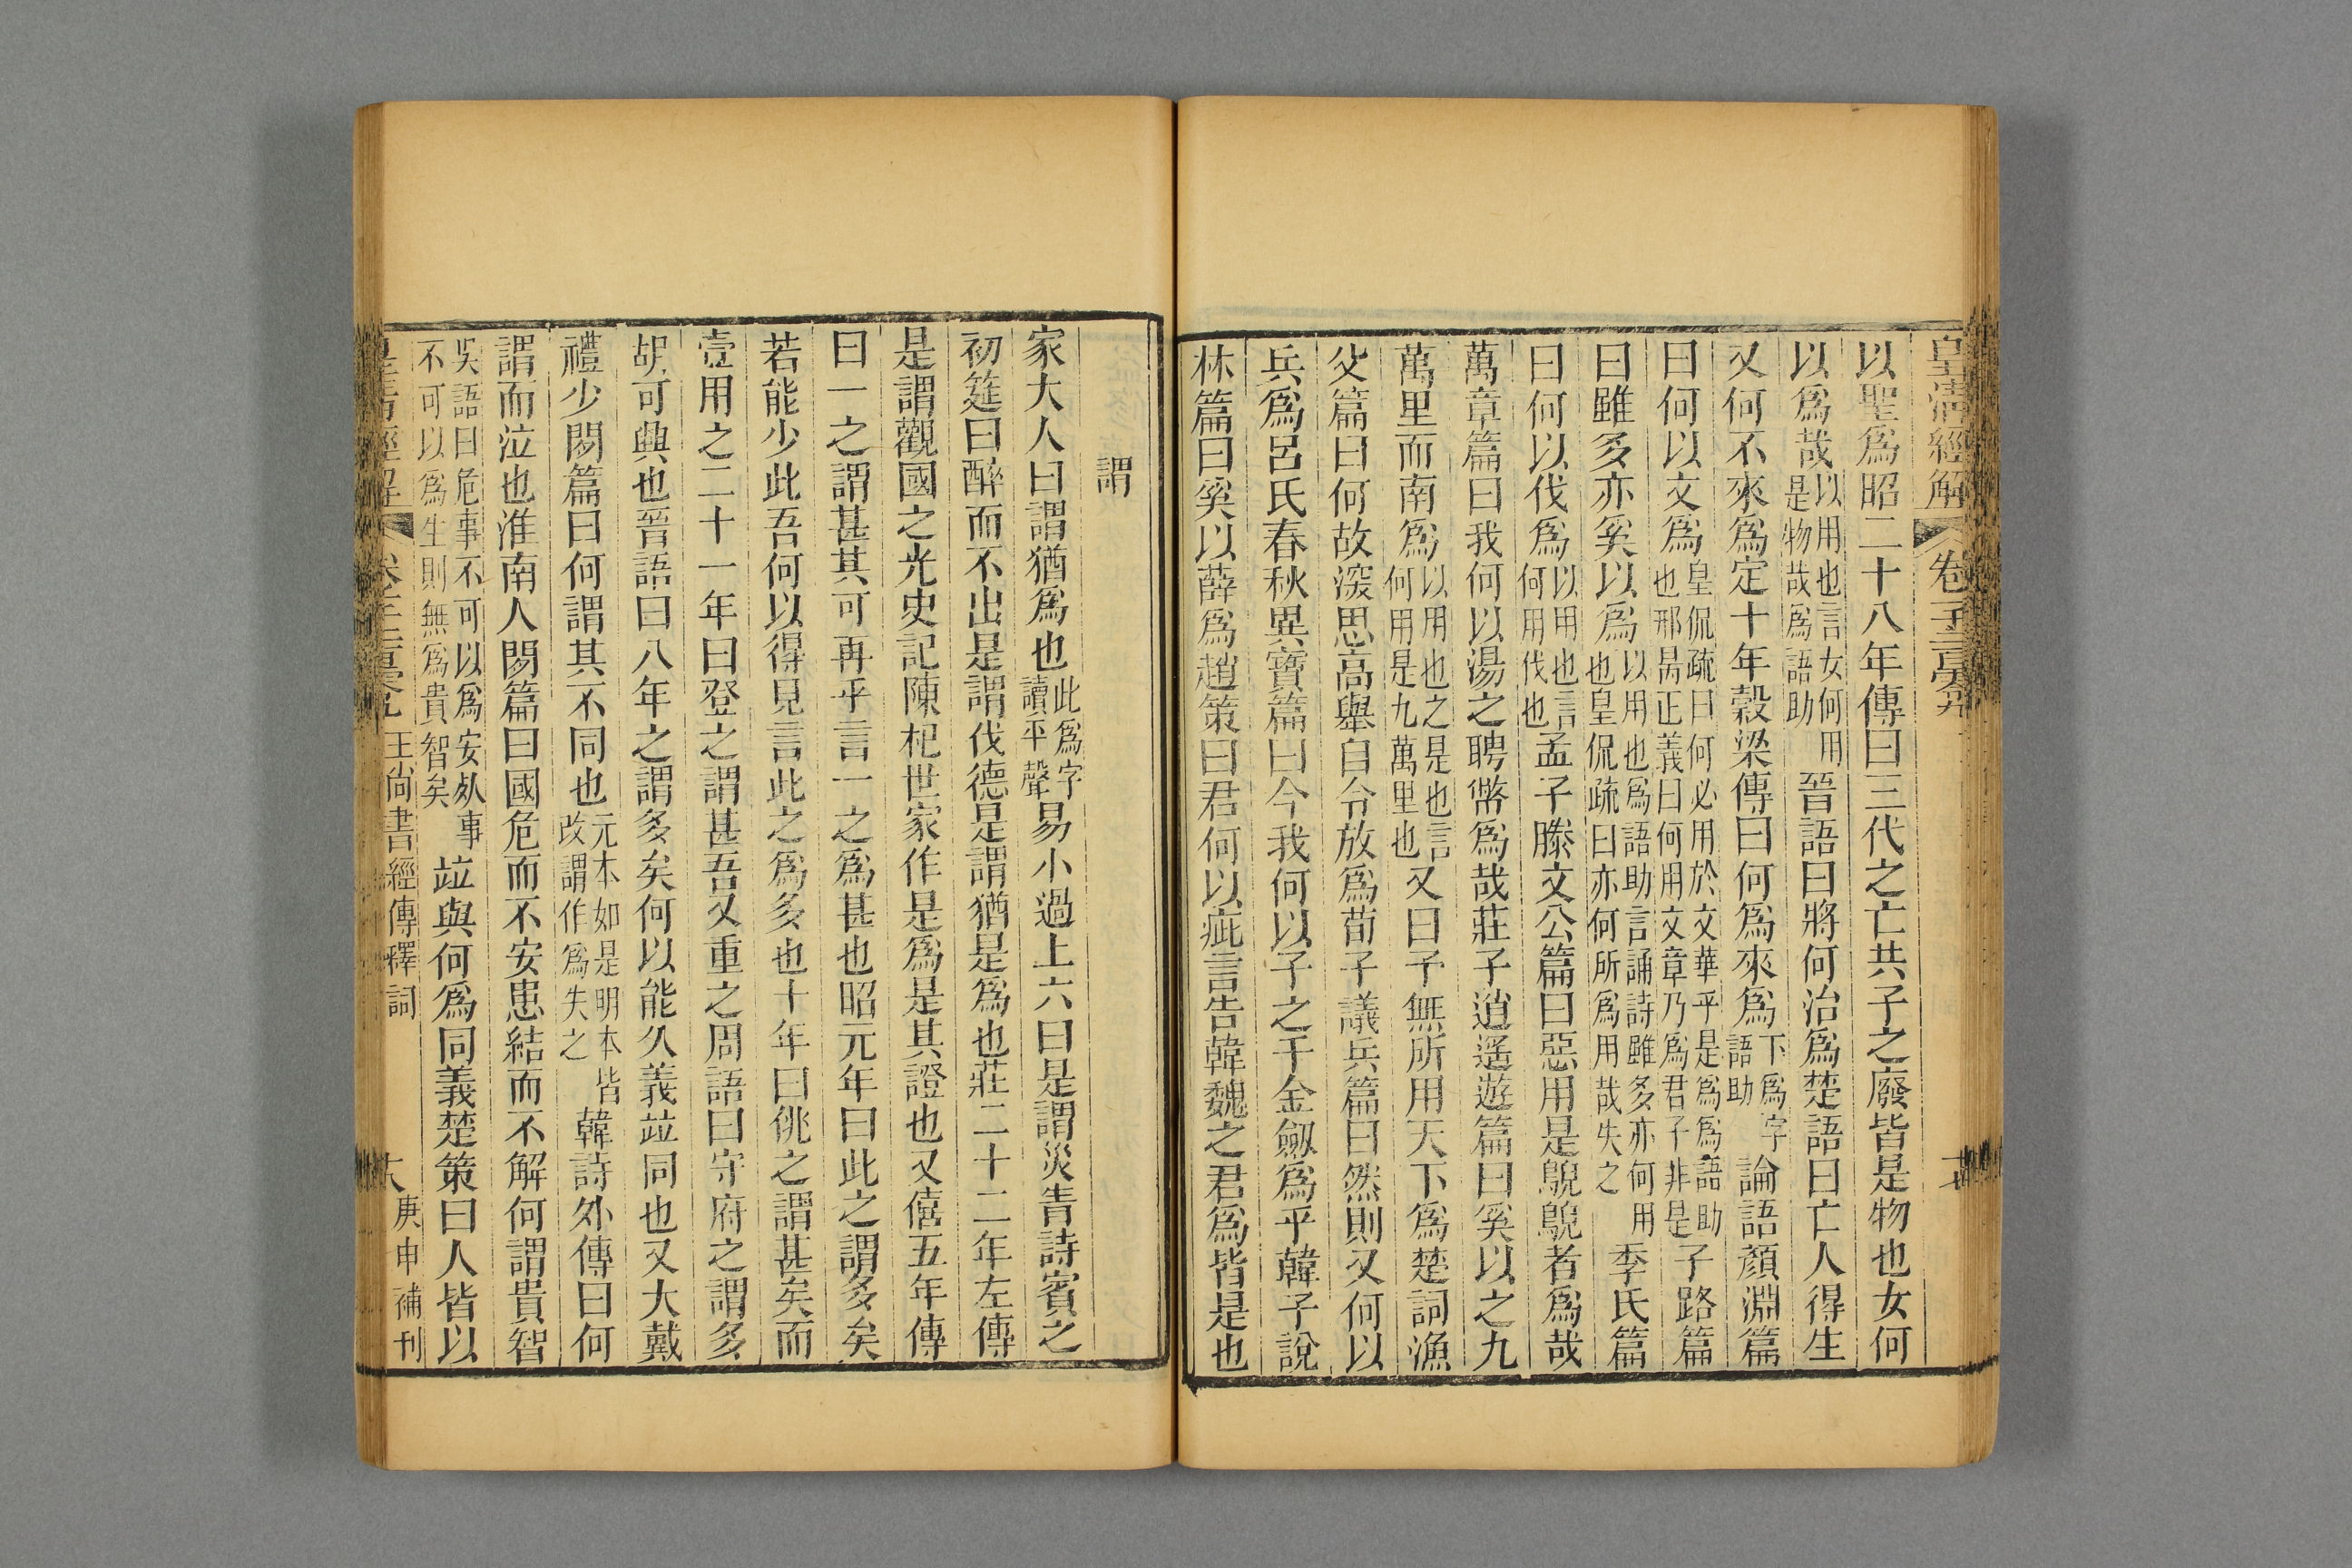 皇清經解 卷千二百九 十七
以聖爲昭二十八年傳曰三代之亡共子之廢皆是物也女何
以爲哉以用也言女何用是物哉爲語助晉語曰將何治爲楚語曰亡人得生
又何不來爲定十年穀梁傳曰何爲來爲下爲字語助論語顏淵篇
曰何以文爲皇侃疏曰何必用於文華乎是爲爲語助也邢昺正義曰何用文章乃爲君子非是子路篇
曰雖多亦奚以爲以用也爲語助言誦詩雖多亦何用也皇侃疏曰亦何所爲用哉失之季氏篇
曰何以伐爲以用也言何用伐也孟子滕文公篇曰惡用是鶃鶃者爲哉
萬章篇曰我何以湯之聘幣爲哉莊子逍遙遊篇曰奚以之九
萬里而南爲以用也之是也言何用是九萬里也又曰予無所用天下爲楚詞漁
父篇曰何故深思高舉自令放爲荀子議兵篇曰然則又何以
兵爲呂氏春秋異寶篇曰今我何以子之千金劒爲乎韓子說
林篇曰奚以薛爲趙策曰君何以疵言告韓魏之君爲皆是也
謂
家大人曰謂猶爲也此爲字讀平聲易小過上六曰是謂災眚詩賓之
初筵曰醉而不出是謂伐德是謂猶是爲也莊二十二年左傳
是謂觀國之光史記陳杞世家作是爲是其證也又僖五年傳
曰一之謂甚其可再乎言一之爲甚也昭元年曰此之謂多矣
若能少此吾何以得見言此之爲多也十年曰佻之謂甚矣而
壹用之二十一年曰登之謂甚吾又重之周語曰守府之謂多
胡可興也晉語曰八年之謂多矣何以能久義竝同也又大戴
禮少閒篇曰何謂其不同也元本如是明本皆改謂作爲失之韓詩外傳曰何
謂而泣也淮南人閒篇曰國危而不安患結而不解何謂貴智
吳語曰危事不可以爲安死事不可以爲生則無爲貴智矣竝與何爲同義楚策曰人皆以
皇清經解 卷千二百九 王尚書經傳釋詞 十八 庚申補刊